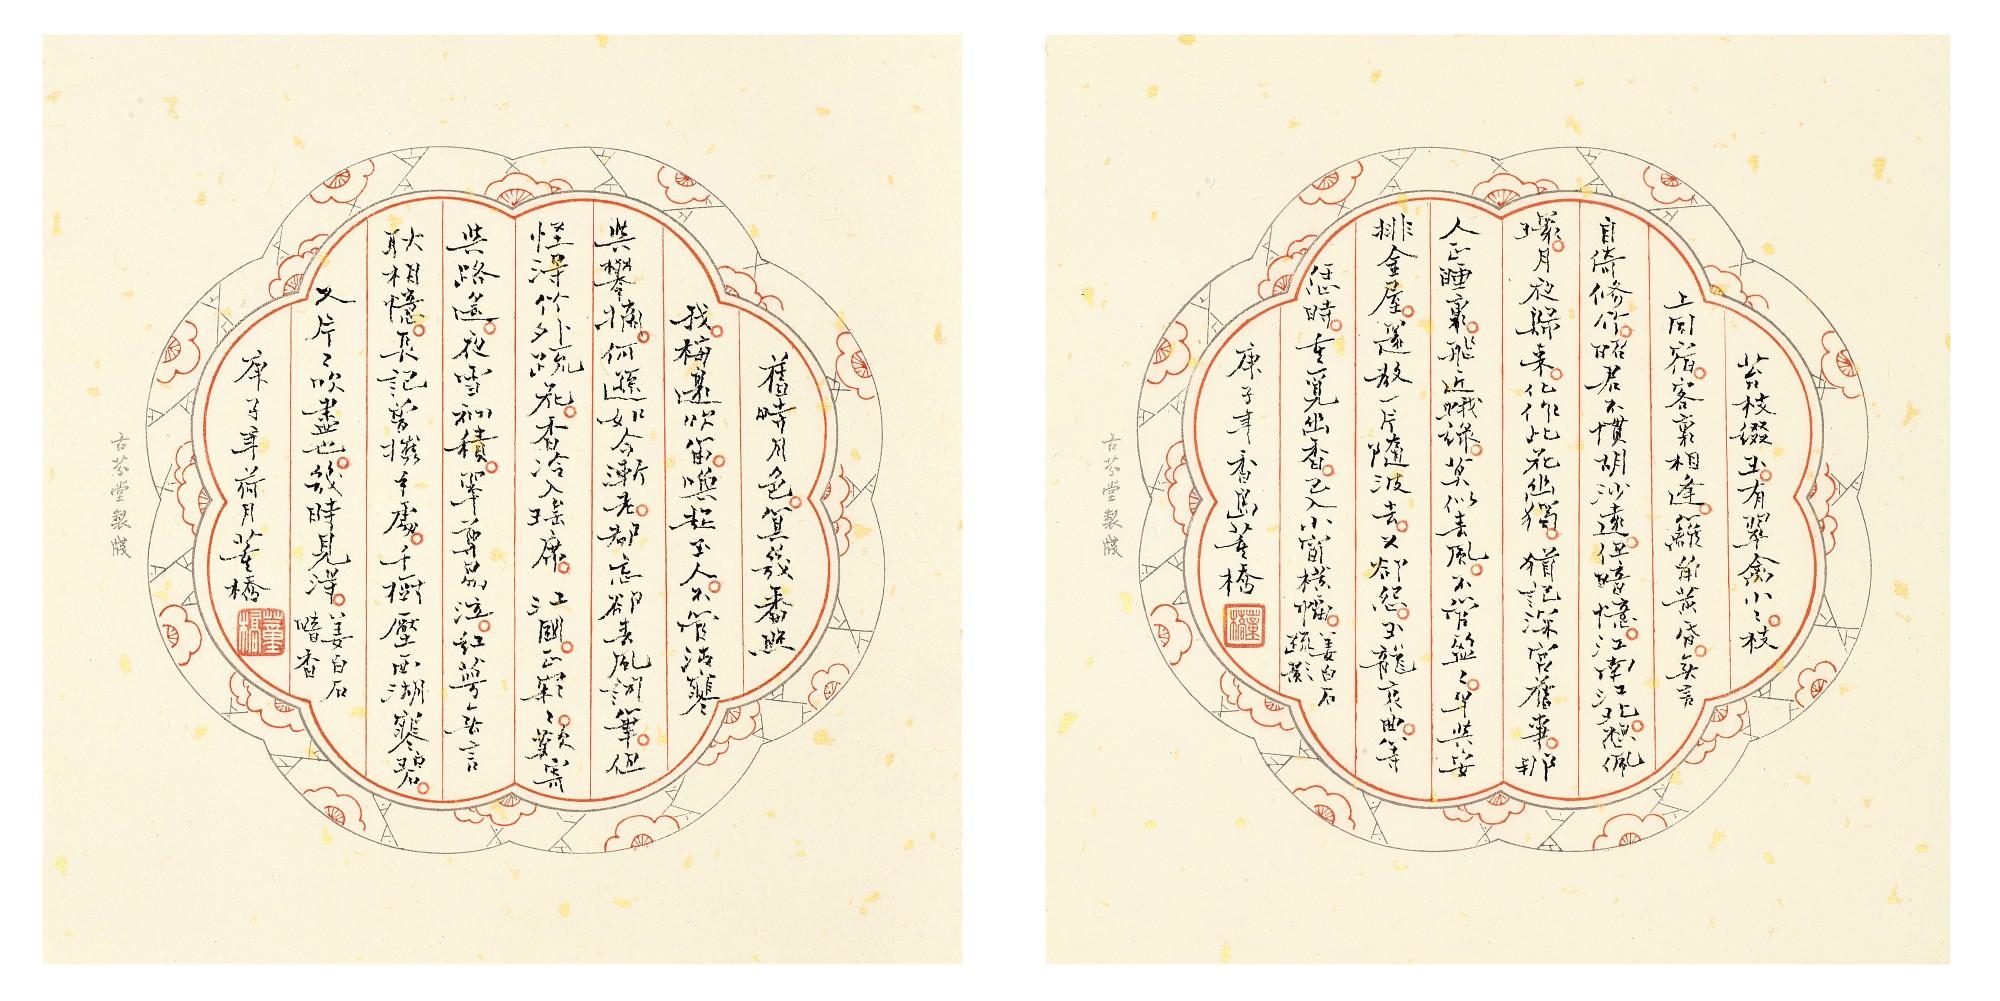 舊時月色。算幾番照
我。梅邊吹笛。喚起玉人。不管清寒
與攀摘。何遜如今漸老。都忘卻春風詞筆。但
怪得竹外疏花。香冷入瑤席。江國。正寂〻。歎寄
與路遙。夜雪初積。翠尊易泣。紅萼無言
耿相憶。長記曾攜手處。千樹壓西湖寒碧。
又片〻吹盡也。幾時見得。
姜白石
暗香
庚子年荷月董橋
董橋
古芬堂製牋
苔枝綴玉。有翠禽小〻枝
上同宿。客裏相逢。籬角黃昏。無言
自倚修竹。昭君不慣胡沙遠。但暗憶。江南江北。想佩
環。月夜歸來。化作此花幽獨。猶記深宮舊事。那
人正睡裏。飛近蛾綠。莫似春風。不管盈〻。早與安
排金屋。還教一片隨波去。又卻怨。玉龍哀曲。等
恁時。重覓幽香。已入小窗橫幅。
姜白石
疏影
庚子年香島董橋
董橋
古芬堂製牋